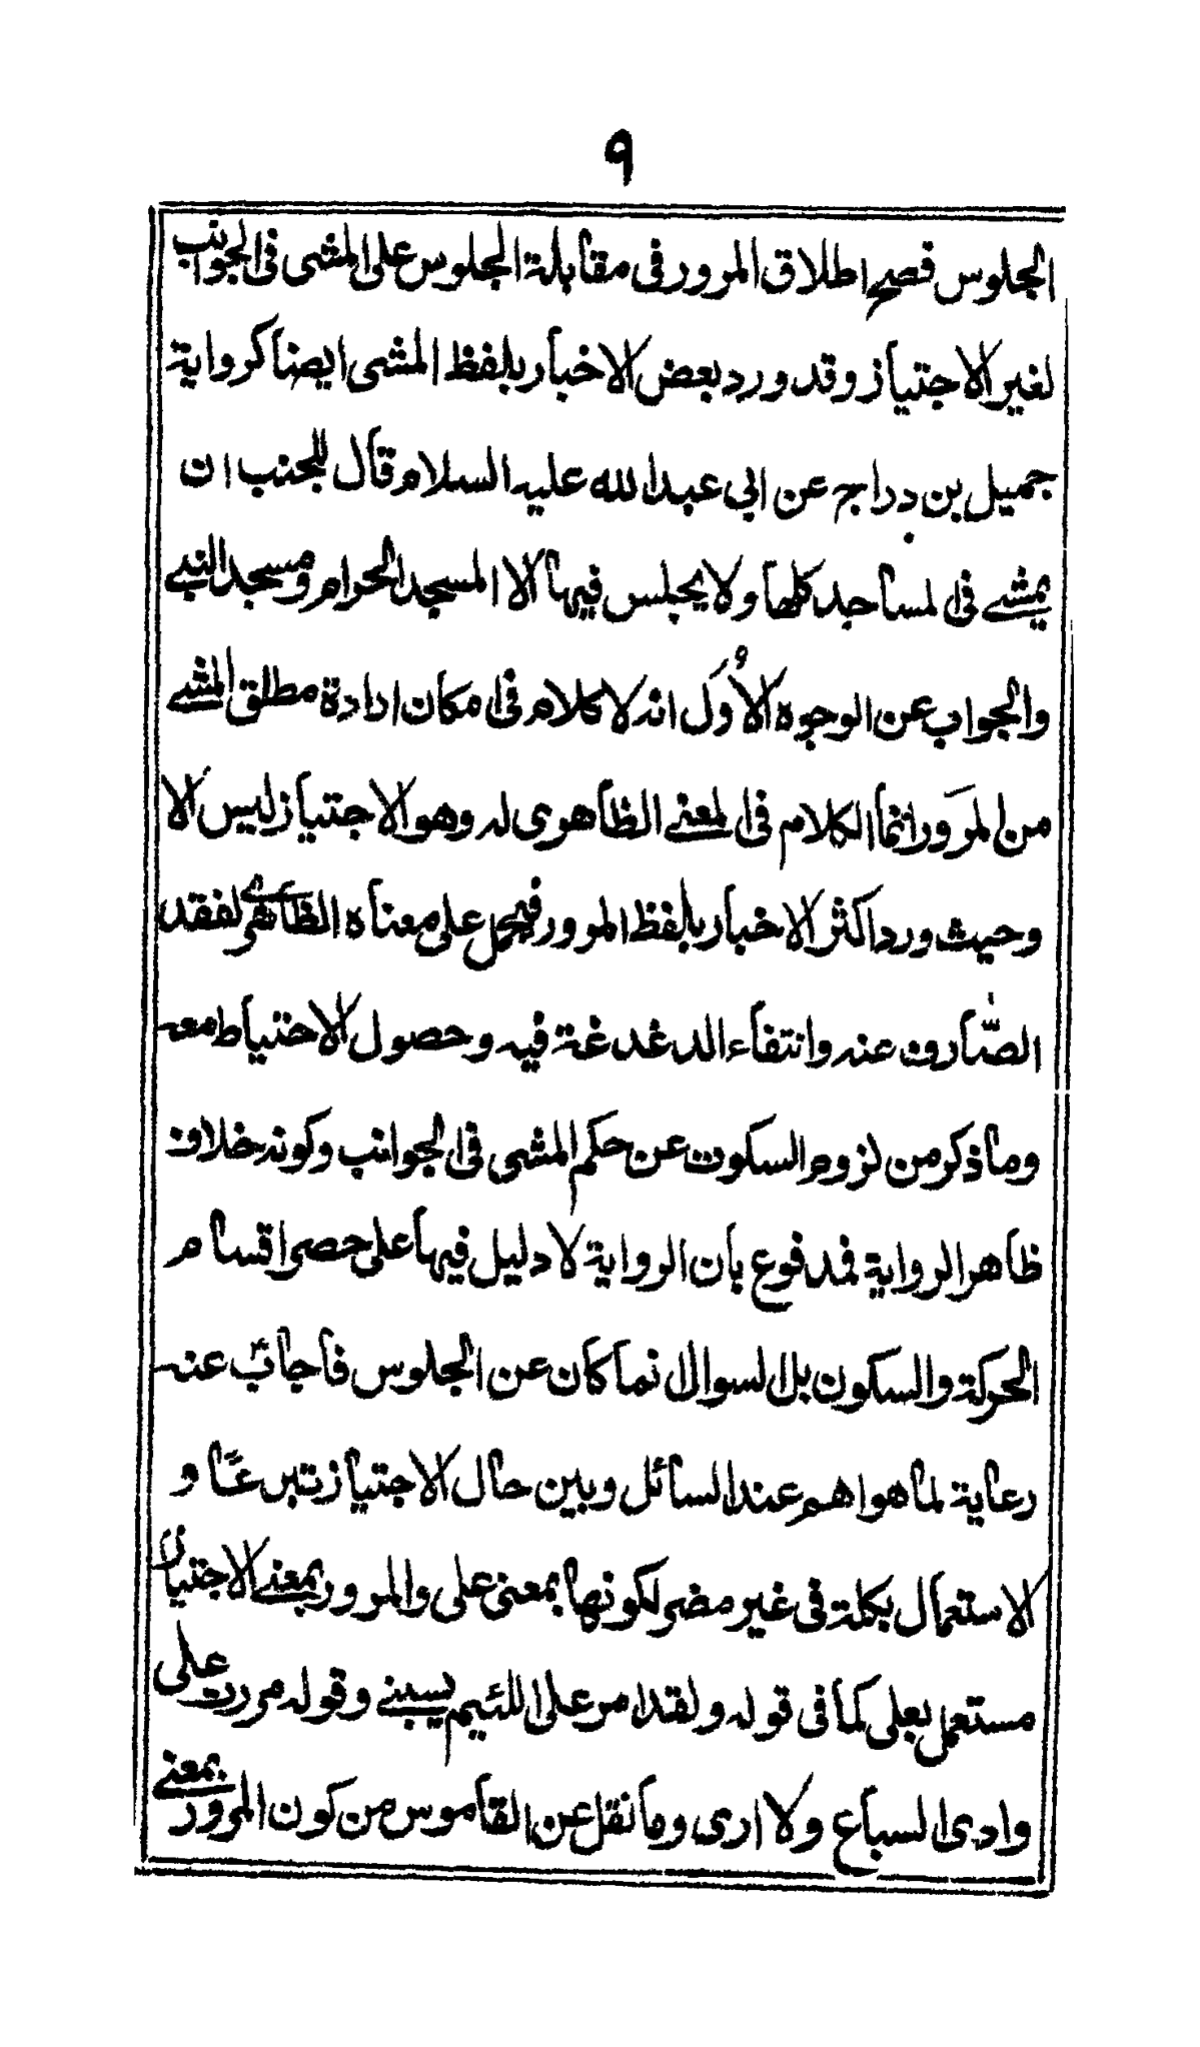 ٩
الجلوس فصح اطلاق المرور فى مقابلة الجلوس على المشى فى الجوانب
لغير الاجتياز وقد ورد بعض الاخبار بلفظ المشى ايضا كرواية
جميل بن دراج عن ابي عبد الله عليه السلام قال للجنب ان
يمشے فى المساجد كلها ولا يجلس فيها الا المسجد الحرام ومسجد النبے
والجواب عن الوجوه الأُوَل انه لا كلام فى امكان ارادة مطلق المشے
من المرَور انما الكلام فى المعنے الظاهرى له وهو الاجتياز ليس الا
وحيث ورد اكثر الاخبار بلفظ المرور فيحمل على معناه الظاهرے لفقد
الصّارف عنه وانتفاء الدغدغة فيه وحصول الاحتياط معه
وما ذكر من لزوم السكوت عن حكم المشى فى الجوانب وكونه خلاف
ظاهر الرواية فمدفوع بان الرواية لا دليل فيها على حصر اقسام
الحركة والسكون بل السوال انما كان عن الجلوس فاجاب عنه
رعاية لما هو اهم عند السائل وبين حال الاجتياز تبرعًا و
الاستعمال بكلمة فى غير مضر لكونها بمعنى على والمرور بمعنے الاجتياز
مستعمل بعلى كما فى قوله ولقد امر على اللئيم يسبنے وقوله مررت على
وادى السباع ولا ارى وما نقل عن القاموس من كون المرور بمعنے